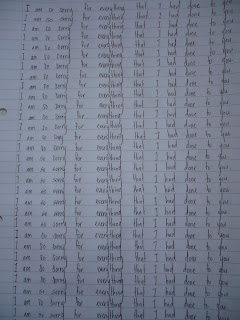 I am so sorry for everything that I had done to you
I am so sorry for everything that I had done to you
I am so sorry for everything that I had done to you
I am so sorry for everything that I had done to you
I am so sorry for everything that I had done to you
I am so sorry for everything that I had done to you
I am so sorry for everything that I had done to you
I am so sorry for everything that I had done to you
I am so sorry for everything that I had done to you
I am so sorry for everything that I had done to you
I am so sorry for everything that I had done to you
I am so sorry for everything that I had done to you
I am so sorry for everything that I had done to you
I am so sorry for everything that I had done to you
I am so sorry for everything that I had done to you
I am so sorry for everything that I had done to you
I am so sorry for everything that I had done to you
I am so sorry for everything that I had done to you
I am so sorry for everything that I had done to you
I am so sorry for everything that I had done to you
I am so sorry for everything that I had done to you
I am so sorry for everything that I had done to you
I am so sorry for everything that I had done to you
I am so sorry for everything that I had done to you
I am so sorry for everything that I had done to you
I am so sorry for everything that I had done to you
I am so sorry for everything that I had done to you
I am so sorry for everything that I had done to you
I am so sorry for everything that I had done to you